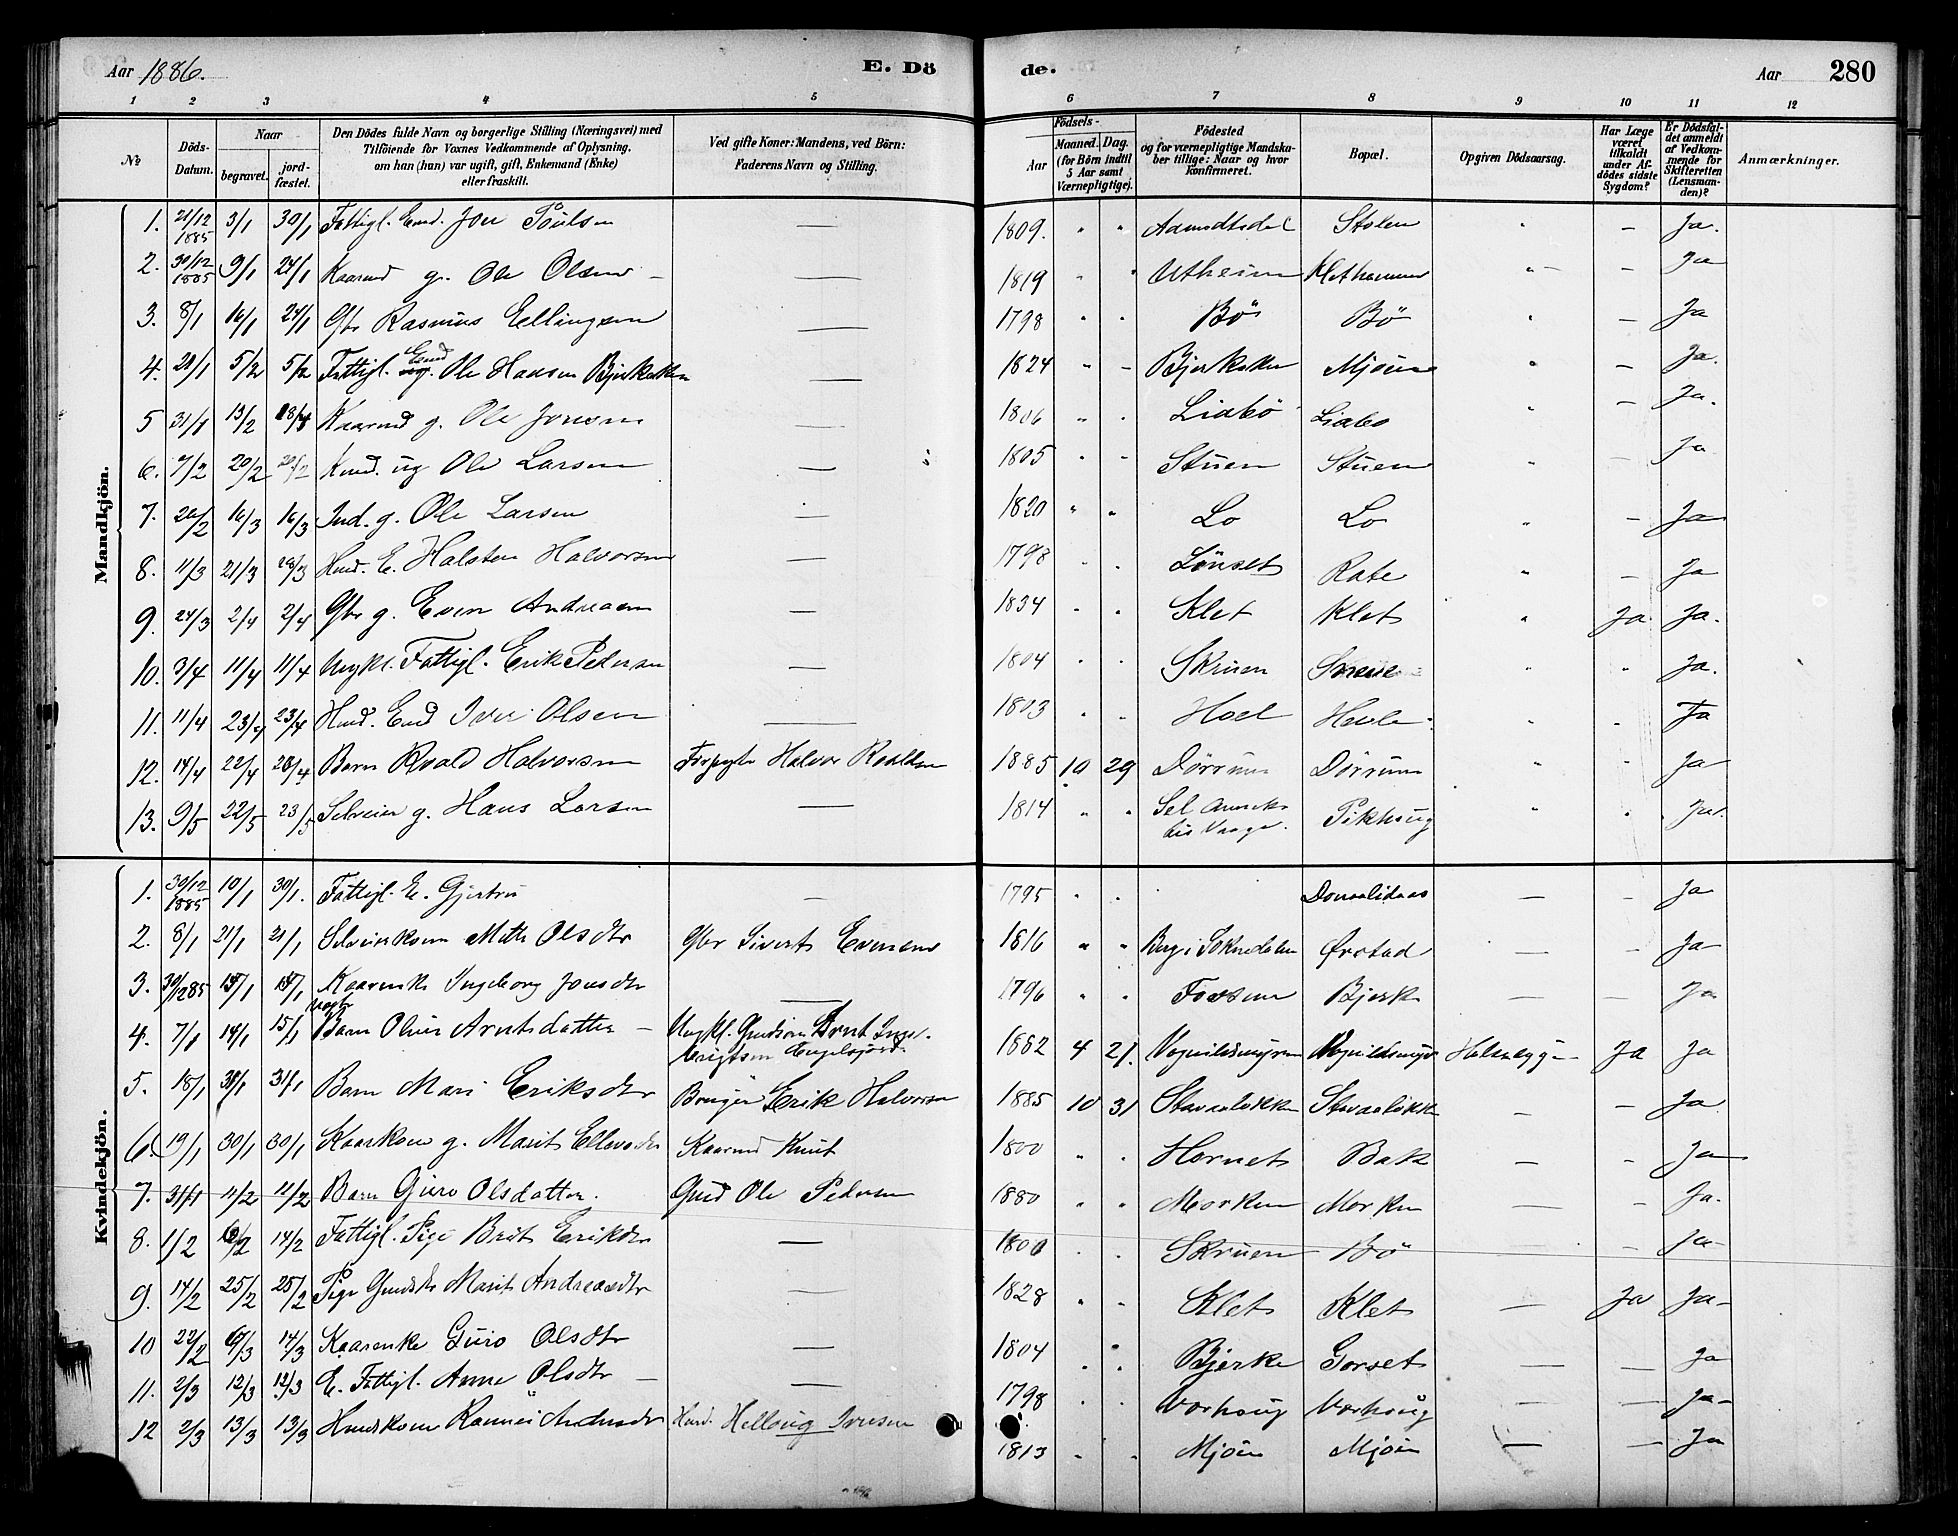 Aar 1886. E. Dö de. Aar 280
1 2 3 4 5 6 7 8 9 10 11 12
No
Döds-Datum.
Naar
begravet.
jord-fæstet.
Den Dödes fulde Navn og borgerlige Stilling (Næringsvei) med
Tilföiende for Voxnes Vedkommende af Oplysning,
om han (hun) var ugift, gift, Enkemand (Enke)
eller fraskilt.
Ved gifte Koner: Mandens, ved Börn:
Faderens Navn og Stilling.
Födsels-
Aar
Maaned. Dag.
(for Börn indtil
5 Aar samt
Værnepligtige).
Födested
og for værnepligtige Mandska-
ber tillige: Naar og hvor
konfirmeret.
Bopæl.
Opgiven Dödsaarsag.
Har Læge
været
tilkaldt
under Af-
dödes sidste
Sygdom?
Er Dödsfal-
det anmeldt
af Vedkom-
mende for
Skifteretten
(Lensman-
den)?
Anmærkninger.
Mandkjön.
1. 21/12 1885 3/1 30/1 Fattigl. Emd. Jon Poulsen — 1809. " " Stolen " — Ja.
2. 30/12 1885 9/1 24/1 Kaarmd g. Ole Olsen — 1819 " " Utheim " — Ja
3. 8/1 16/1 24/1 Gbr Rasmus Ellingsen — 1798 " " Bö Bö " — Ja
4. 21/1 5/2 5/2 Fattigl. Emd Ole Hansen Bjerkaken — 1824 " " Bjerkaken Mjöen " — Ja.
5 31/1 13/2 Kaarmd g. Ole Jonsen — 1806 " " Liabö Liabö " — Ja.
6. 7/2 20/2 20/2 ug Ole Larsen — 1805 " " Stuen Stuen " — Ja
7. 20/2 16/3 16/3 Ind. g. Ole Larsen — 1820 " " Lo Lo " — Ja
8. 11/3 21/3 28/3 Hmd. E. Halsten Halvorsen — 1798 " " Lönset Rate " — Ja
9. 24/3 2/4 2/4 Gbr g. Even Andreasen — 1834 " " Klet Klet " Ja Ja.
10. 3/4 11/4 11/4 Fattigl. Erik Pedersen — 1804 " " Skruen " " Ja.
11. 11/4 23/4 23/4 Hmd. Emd Iver Olsen — 1803 " " Hoel " " Ja
12. 14/4 22/4 Barn Roald Halvorsen Forpagter Halvor Roaldsen 1885 10 29 Dörrum Dörrum " " Ja
13. 9/5 22/5 23/5 Selveier g. Hans Larsen — 1814 " " Sel Pikhoug " " Ja.
Kvindekjön.
1. 30/12 1885 10/1 30/1. Fattigl. E. Gjertru — 1795 " " Ja
2. 8/1 21/1 21/1 Selveierkone Mette Olsdtr Gbr Sivert Evensen 1816 " " Berg i Soknedalen Örstad — — Ja
3. 30/12 85 Kaarenke Ingeborg Jonsdtr — 1796 " " Fossen Bjerk — — Ja
4. 7/1 14/1 15/1 Barn Oline Arntsdatter — Ungkl. Gmdsön Arnt Inge-
brigtsen Engelsjord 1882 4 21. Vognildsmyren Ja Ja
5. 18/1 31/1 31/1 Barn Mari Eriksdtr Bruger Erik Halvorsen 1885 10 31 Stavaalökken Stavaalökk — — Ja
6. 19/1 30/1 30/1 Kaarkone g. Marit Ellevsdtr Kaarmd Knut 1800 " " Hornet Bak — — Ja
7. 31/1 11/2 11/2 Barn Guro Olsdatter. Gmd Ole Pedersen 1880 " " Morken Morken — — Ja.
8. 1/2 14/2 Fattigl. Pige Brit Eriksdtr — 1800 " " Skruen Bö — — Ja
9. 14/2 25/2 25/2 Pige Marit Andreasdtr — 1828 " " Klet Klet — Ja Ja-
10 22/2 14/3 Kaarenke Guro Olsdtr — 1804 " " Bjerke Gorset — — Ja
11. 2/3 12/3 12/3 E. Fattigl. Anne Olsdtr — — 1798 " " Vorhoug Vorhoug — — Ja-
12 2/3 13/3 13/3 Husmdskone Rannei Andersdtr Hmd. Hellvig Iversen 1813 " " Mjöen Mjöen — — Ja